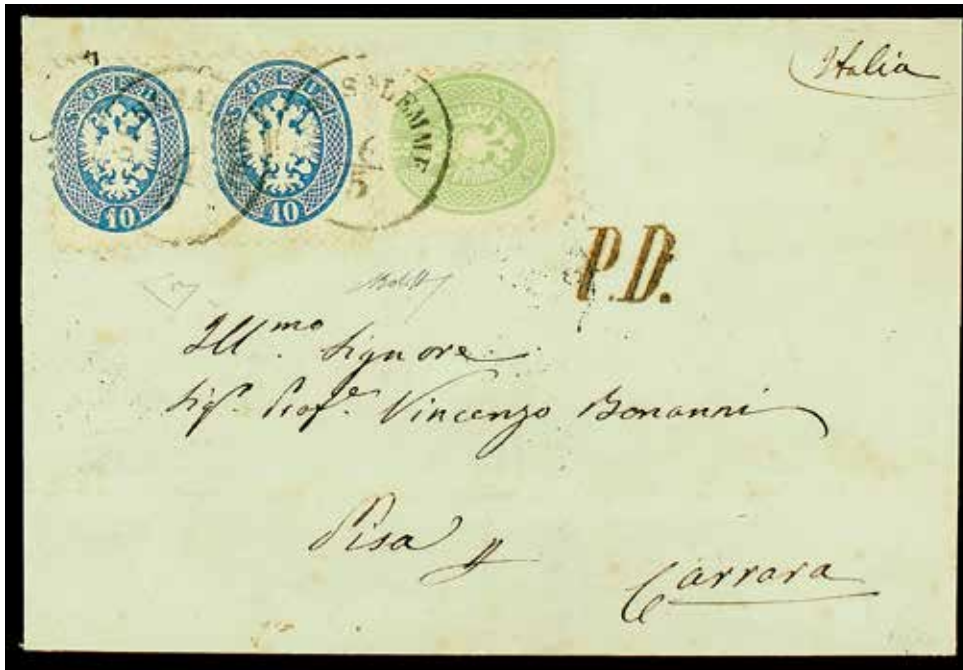 Italia
SOLDI 10
SOLDI 10
P.D.
Ill.mo Signore
Sigr. Profe. Vincenzo Bonanni
Pisa
Carrara